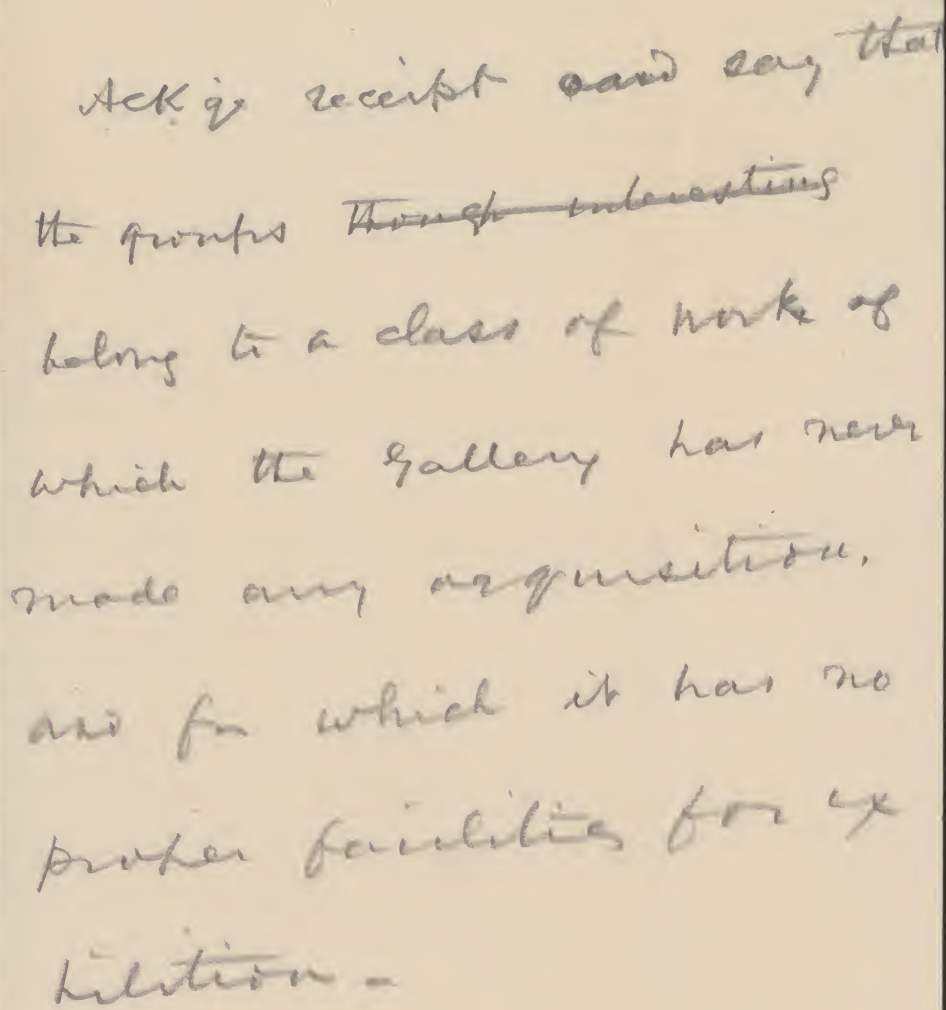 Ackg receipt and say that
the groups ~~though interesting~~
belong to a class of work of
which the Gallery has never
made any acquisition,
and for which it has no
proper facilities for ex
hibition -